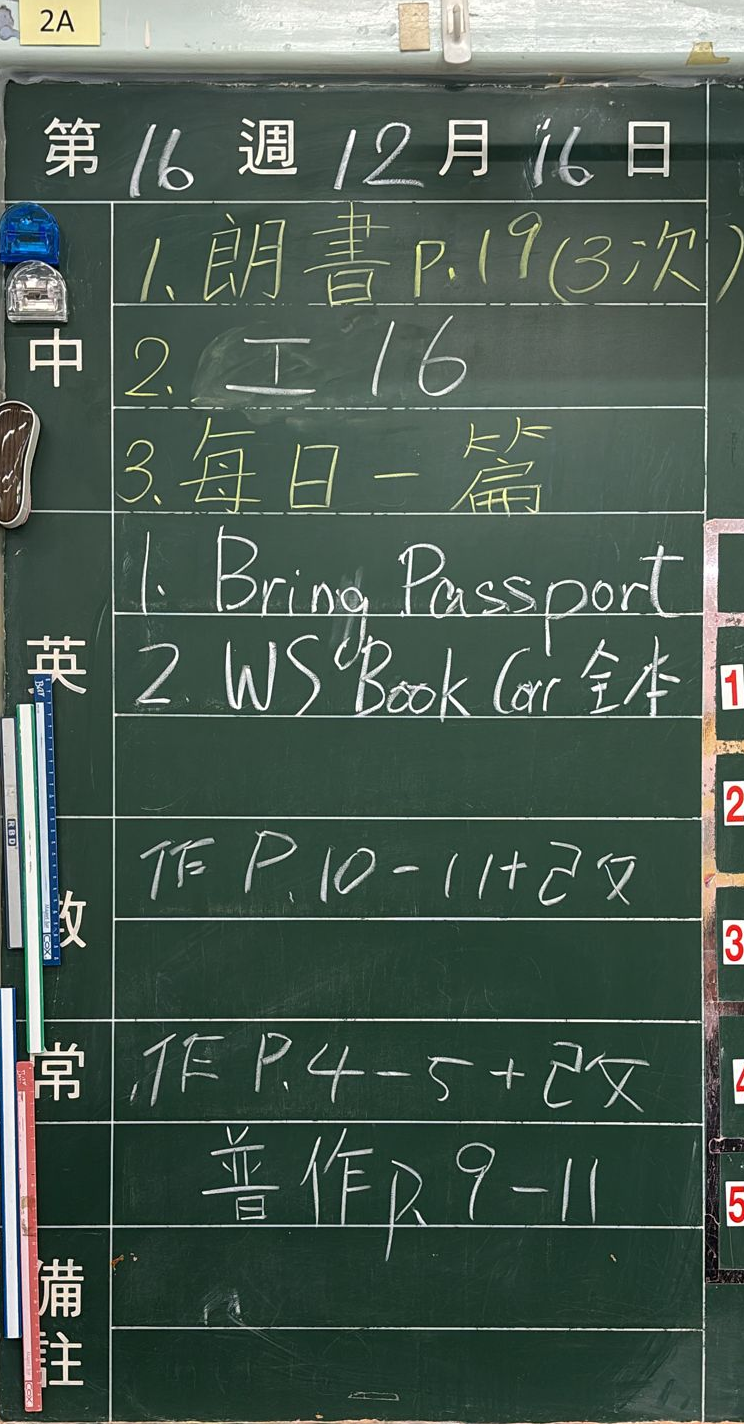 2A
第 16 週 12 月 16 日
中
1. 朗書 P.19 (3次)
2. 工 16
3. 每日一篇
英
1. Bring Passport
2. WS Book Corr 全本
數
作 P.10-11+改
常
作 P.4-5+改
普作 p.9-11
備註
1
2
3
4
5